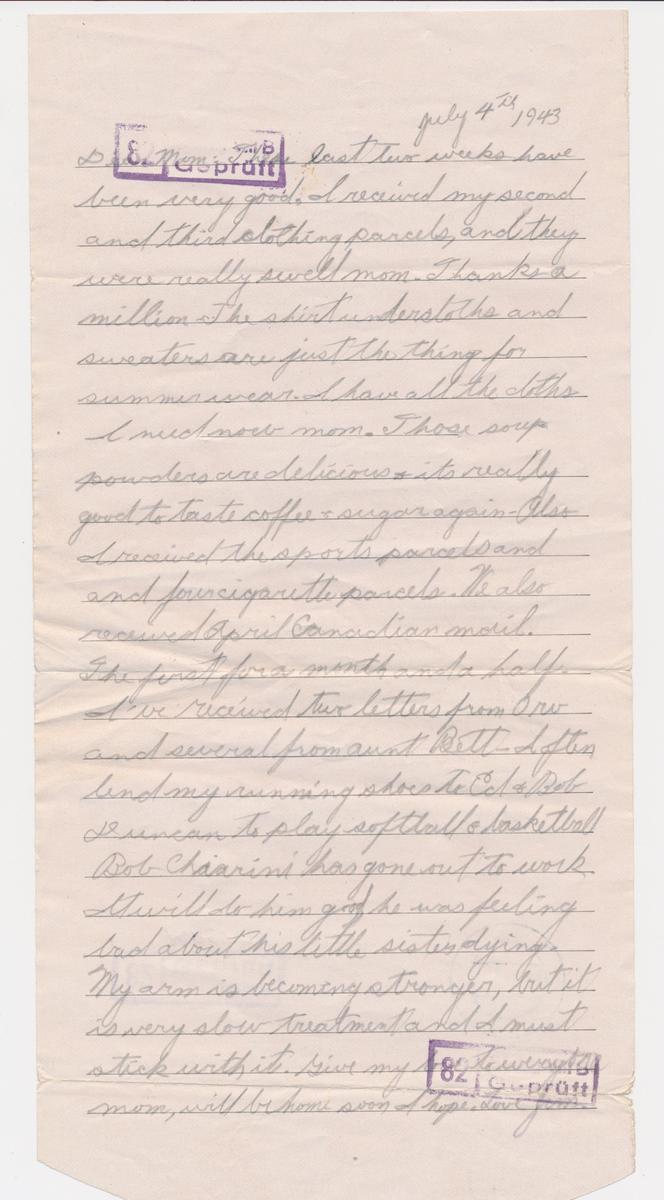 July 4th 1943
82 B
Geprüft
Dear Mom: These last two weeks have
been very good. I received my second
and third clothing parcels, and they
were really swell mom. Thanks a
million. The shirt undercloths and
sweaters are just the thing for
summer wear. I have all the cloths
I need now mom. Those soup
powders are delicious & its really
good to taste coffee & sugar again - Also
I received the sports parcels and
and four cigarette parcels. We also
received April Canadian mail.
The first for a month and a half.
I've received two letters from Orv
and several from aunt Bett - I often
lend my running shoes to Ed & Bob
Duncan to play softball & basketball
Bob Chiarini has gone out to work.
It will do him good he was feeling
bad about his little sister dying.
My arm is becoming stronger, but it
is very slow treatment and I must
stick with it. Give my to everyone
82 B
Geprüft
mom, will be home soon I hope. Love Jim.